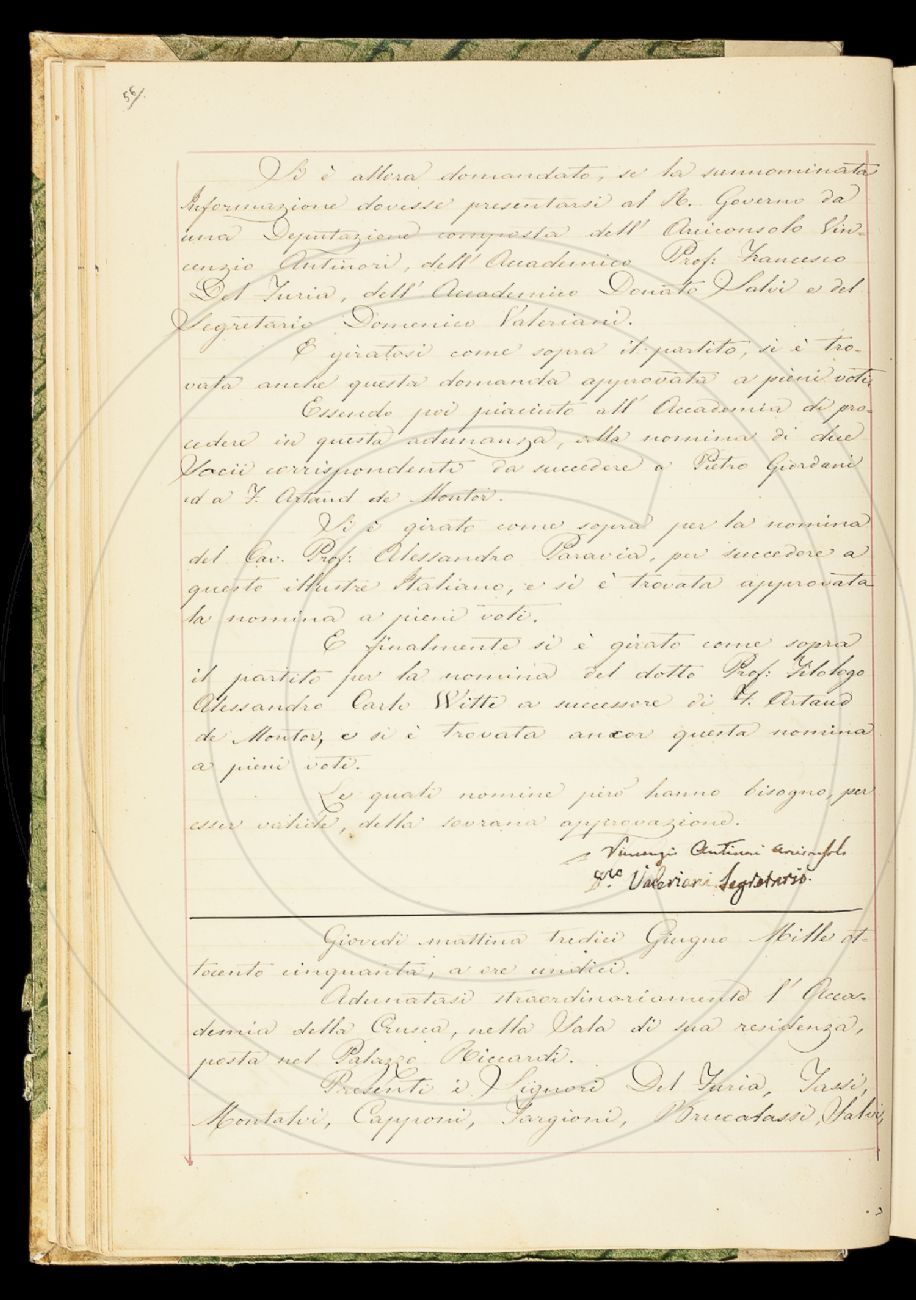 56/.
Si è allora domandato, se la sunnominata
Informazione dovesse presentarsi al R. Governo da
una Deputazione composta dell' Arciconsolo Vin-
cenzio Antinori, dell' Accademico Prof: Francesco
Del Furia, dell' Accademico Donato Salvi e del
Segretario Domenico Valeriani.
E giratosi come sopra il partito, si è tro-
vata anche questa domanda approvata a pieni voti
Essendo poi piaciuto all' Accademia di pro-
cedere in questa adunanza, alla nomina di due
Socii corrispondenti da succedere a Pietro Giordani
ed a F. Artaud de Montor.
Si è girato come sopra per la nomina
del Cav. Prof: Alessandro Paravia, per succedere a
questo illustre Italiano, e si è trovata approvata
la nomina a pieni voti.
E finalmente si è girato come sopra
il partito per la nomina del dotto Prof: Filologo
Alessandro Carlo Witte a successore di F. Artaud
de Montor, e si è trovata ancor questa nomina
a pieni voti.
Le quali nomine però hanno bisogno, per
esser valide, della sovrana approvazione.
Vincenzio Antinori Arciconsolo
Valeriani Segretario.
Giovedì mattina tredici Giugno Mille ot-
tocento cinquanta, a ore undici.
Adunatasi straordinariamente l' Acca-
demia della Crusca, nella Sala di sua residenza,
posta nel Palazzo Riccardi.
Presenti i Signori Del Furia, Tassi,
Montalvi, Capponi, Targioni, Brucalassi, Salvi,